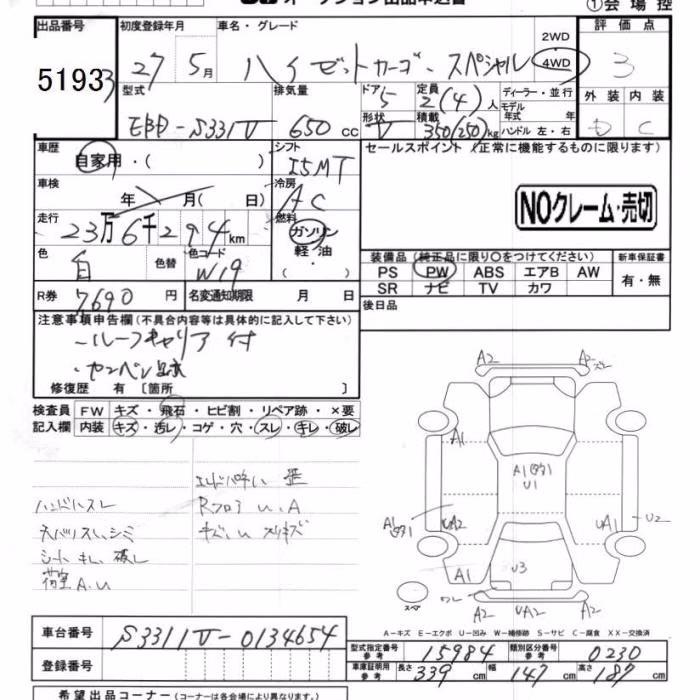 オークション出品申込書 ①会場控
出品番号 初度登録年月 車名・グレード 評価点
5193 27年 5月 ハイゼットカーゴ・スペシャル 2WD 4WD 3
型式 排気量 ドア 定員 ディーラー・並行 外装 内装
5 2(4)人 モデル
形状 積載 年式 年
EBD-S331V 650cc V 350(250)kg ハンドル 左・右 D C
車歴 シフト セールスポイント (正常に機能するものに限ります)
自家用・( ) I5MT
車検 冷房
年 月( 日) AC
NOクレーム・売切
走行 燃料
23万6千294km ガソリン
色 色替 色コード 軽・油 装備品(純正品に限り○をつけてください) 新車保証書
白 W19 ・( ) PS PW ABS エアB AW 有・無
R券 7690円 名変通知期限 月 日 SR ナビ TV カワ
注意事項申告欄(不具合内容等は具体的に記入して下さい) 後日品
・ルーフキャリア付
・カンバン跡
修復歴 有〔箇所 〕
検査員 FW キズ・飛石・ヒビ割・リペア跡・×要
記入欄 内装 キズ・汚レ・コゲ・穴・スレ・キレ・破レ
A2 A2
A1
A1
U1
A1 UA2 UA1 U2
A1 U3
スペア A2 UA2 A2
Rフロア U.A
ハンドルスレ キズ.U
シート キレ 破レ
荷室 A.U
A-キズ E-エクボ U-凹み W-補修跡 S-サビ C-腐食 XX-交換済
車台番号 S331V-0134654
型式指定番号 参考 15984 類別区分番号 参考 0230
登録番号 車庫証明用 参考 長さ 339cm 幅 147cm 高さ 187cm
希望出品コーナー(コーナーは各会場により異なります。)